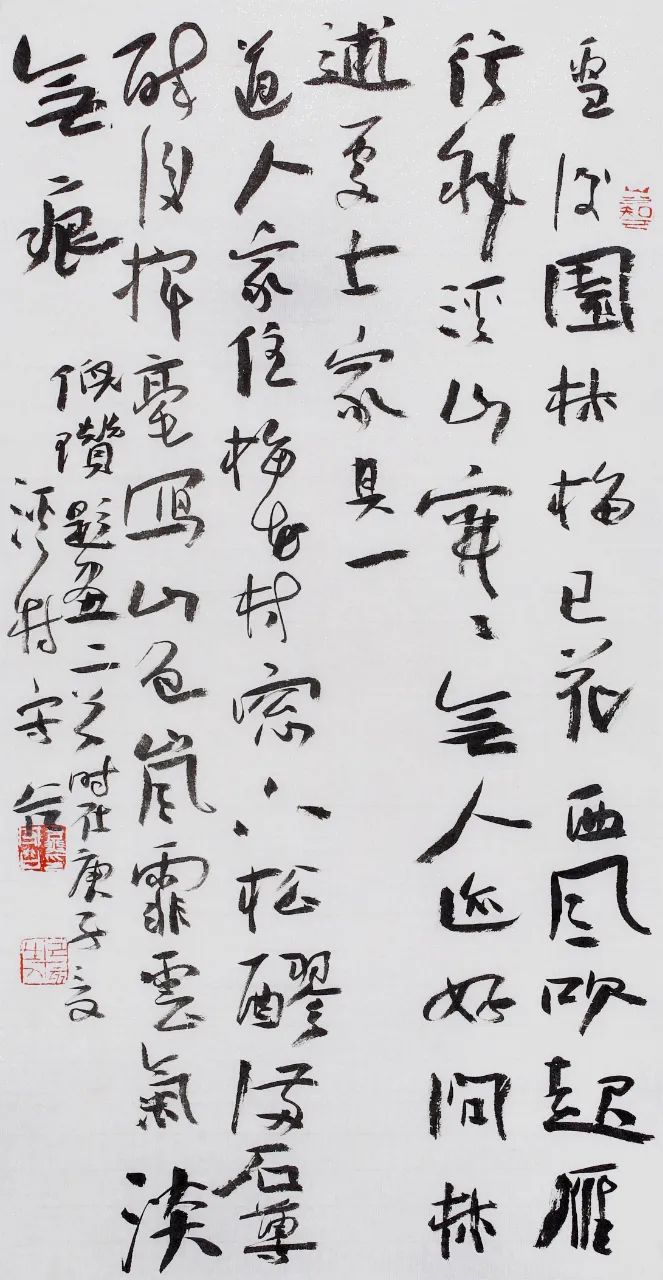 雪後園林梅已花西風吹起雁
行斜溪山寂々無人迹好問林
逋處士家其一
道人家住梅花村窓下松醪滿石尊
醉後揮毫寫山色嵐霏雲氣淡
無痕
倪瓚題畫二首時在庚子之夏
溪村